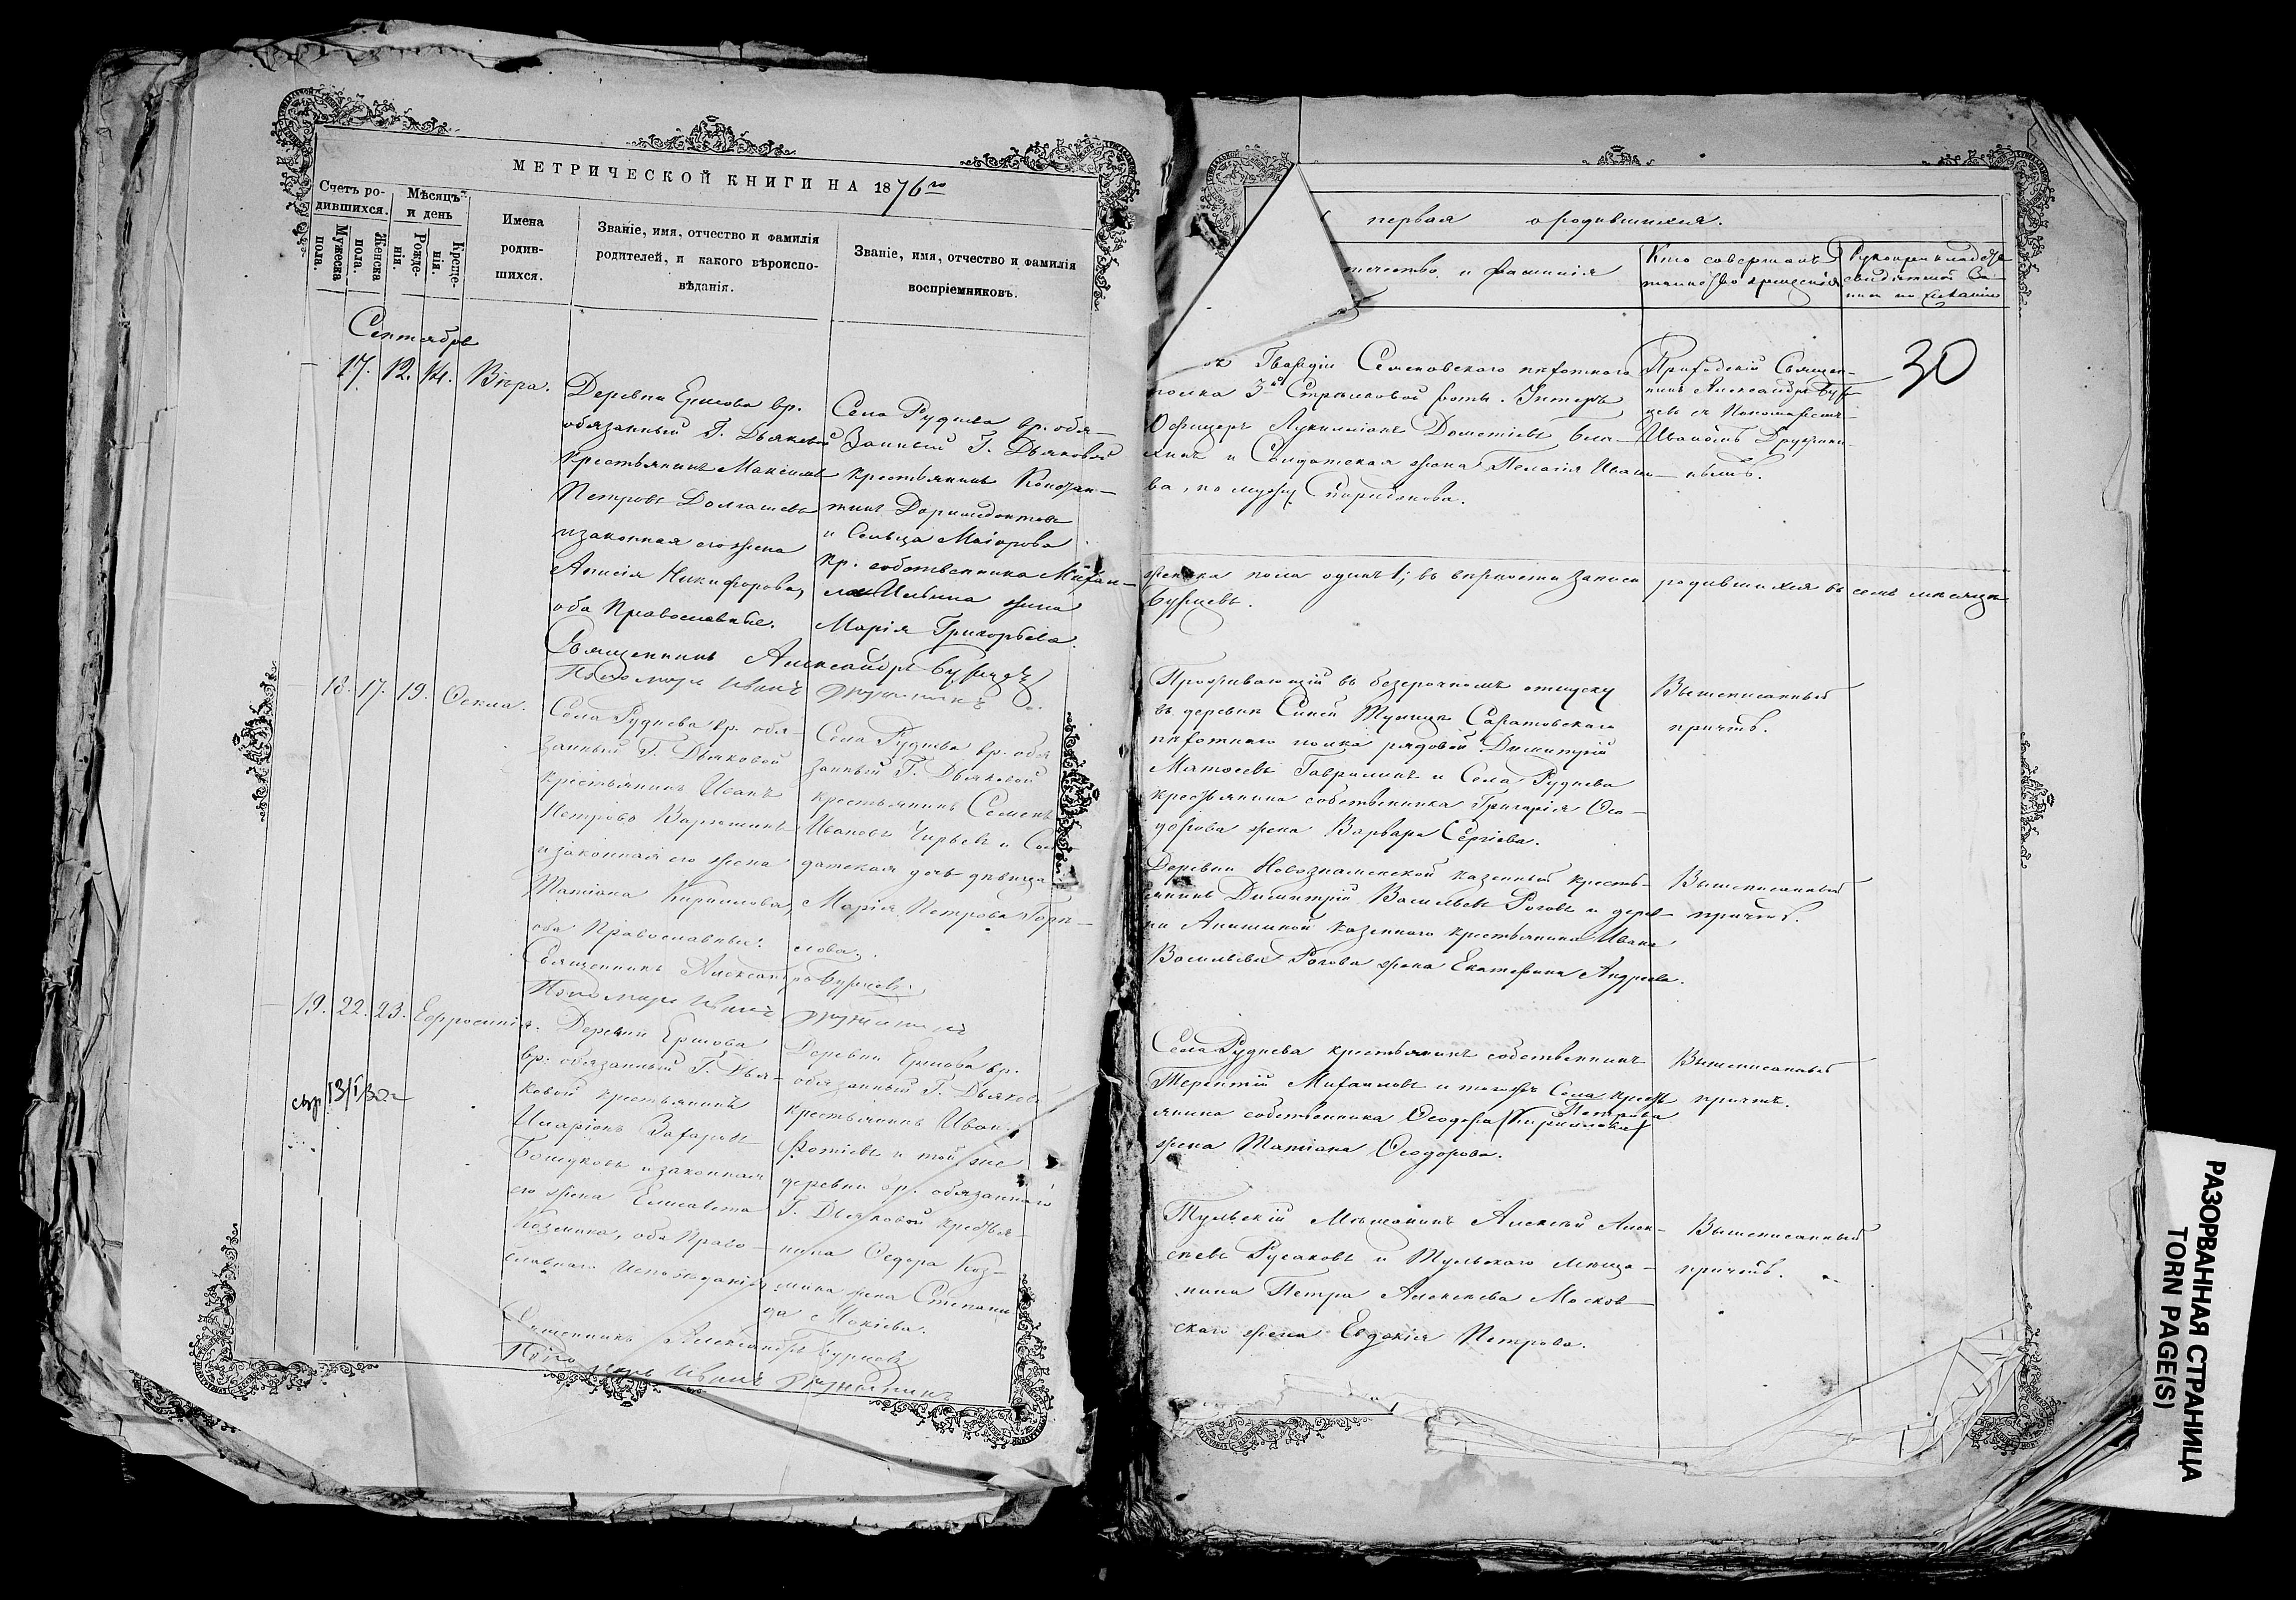 МЕТРИЧЕСКОЙ КНИГИ НА 1876го
Счетъ ро-
дившихся.
Мужеска пола.
Женска пола.
Мѣсяцъ
и день
Рожде-
нія.
Креще-
нія.
Имена
родив-
шихся.
Званіе, имя, отчество и фамилія
родителей, и какого вѣроиспо-
вѣданія.
Званіе, имя, отчество и фамилія
воспріемниковъ.
Сентябрь
17. 12. 14. Вѣра.
Деревни Ершова вр.
обязанный Г. Дьяковой
крестьянинъ Максимъ
Петровъ Долгашевъ
и законная его жена
Анисія Никифорова,
оба Православные.
Села Руднева вр. обя-
занный Г. Дьяковой
крестьянинъ Констан-
тинъ Доримедонтовъ
и Сельца Маіорова
кр. собственника Михаи-
ла Ильина жена
Марія Григорьева.
Священникъ Александръ Бурцевъ
Пономарь Иванъ Дружининъ
18. 17. 19. Ѳекла.
Села Руднева вр. обя-
занный Г. Дьяковой
крестьянинъ Иванъ
Петровъ
и законная его жена
Татіана Кириллова,
оба Православные.
Села Руднева вр. обя
занный Г. Дьяковой
крестьянинъ Семенъ
Ивановъ Чирьевъ и Сол
датская дочь дѣвица
Марія Петрова
Священникъ Александръ Бурцевъ
Пономарь Иванъ Дружининъ
19. 22. 23. Ефросинія.
Деревни Ершова
вр. обязанный Г. Дья-
ковой крестьянинъ
Иларіонъ Захаровъ
и законная
его жена Елисавета
Козмина, оба Право-
славнаго Исповѣданія
Деревни Ершова вр.
обязанный Г. Дьяков
крестьянинъ Иван.
Фотіевъ и той же
деревни вр. обязаннаго
Г. Дьяковой крестья-
нина Ѳедора Коз-
мина жена Степани
да Мокіева.
Священникъ Александръ Бурцевъ
Пономарь Иванъ Дружининъ
первая о родившихся.
отчество и фамилія
Кто совершалъ
таинство крещенія
Рукоприкладство
свидѣтелей за-
писи по желанію
30
Гвардіи Семеновскаго пѣхотнаго
полка 3й Стрѣлковой роты. Унтеръ
Офицеръ Лукилліанъ Дометіевъ
и Солдатская жена Пелагія Ивано-
ва, по мужу Спиридонова.
Приходскій Священ-
никъ Александръ Бур-
цевъ съ Пономаремъ
Иваномъ Дружини-
нымъ.
женска пола одинъ 1; въ вѣрности записи родившихся въ семъ мѣсяцѣ
Бурцевъ.
Проживающій въ безсрочномъ отпуску
въ деревнѣ Синей Тулицѣ Саратовскаго
пѣхотнаго полка рядовой Димитрій
Матѳеевъ Гаврилинъ и Села Руднева
крестьянина собственника Григорія Ѳео-
дорова жена Варвара Сергіева.
Вышеписанный
причтъ.
Деревни Новознаменской казенный кресть-
янинъ Димитрій Васильевъ Роговъ и дерев-
ни Анишиной казеннаго крестьянина Ивана
Васильева Рогова жена Екатерина Андреева.
Вышеписанный
причтъ.
Села Руднева крестьянинъ собственникъ
Терентій Михаиловъ и тогоже Села кресть
янина собственника Ѳеодора (Кириллова)
Петрова
жена Татіана Ѳеодорова.
Вышеписанный
причтъ.
Тульскій Мѣщанинъ Алексѣй Алек-
сѣевъ Русаковъ и Тульскаго мѣща-
нина Петра Алексѣева Москов-
скаго жена Евдокія Петрова.
Вышеписанный
причтъ.
РАЗОРВАННАЯ СТРАНИЦА
TORN PAGE(S)